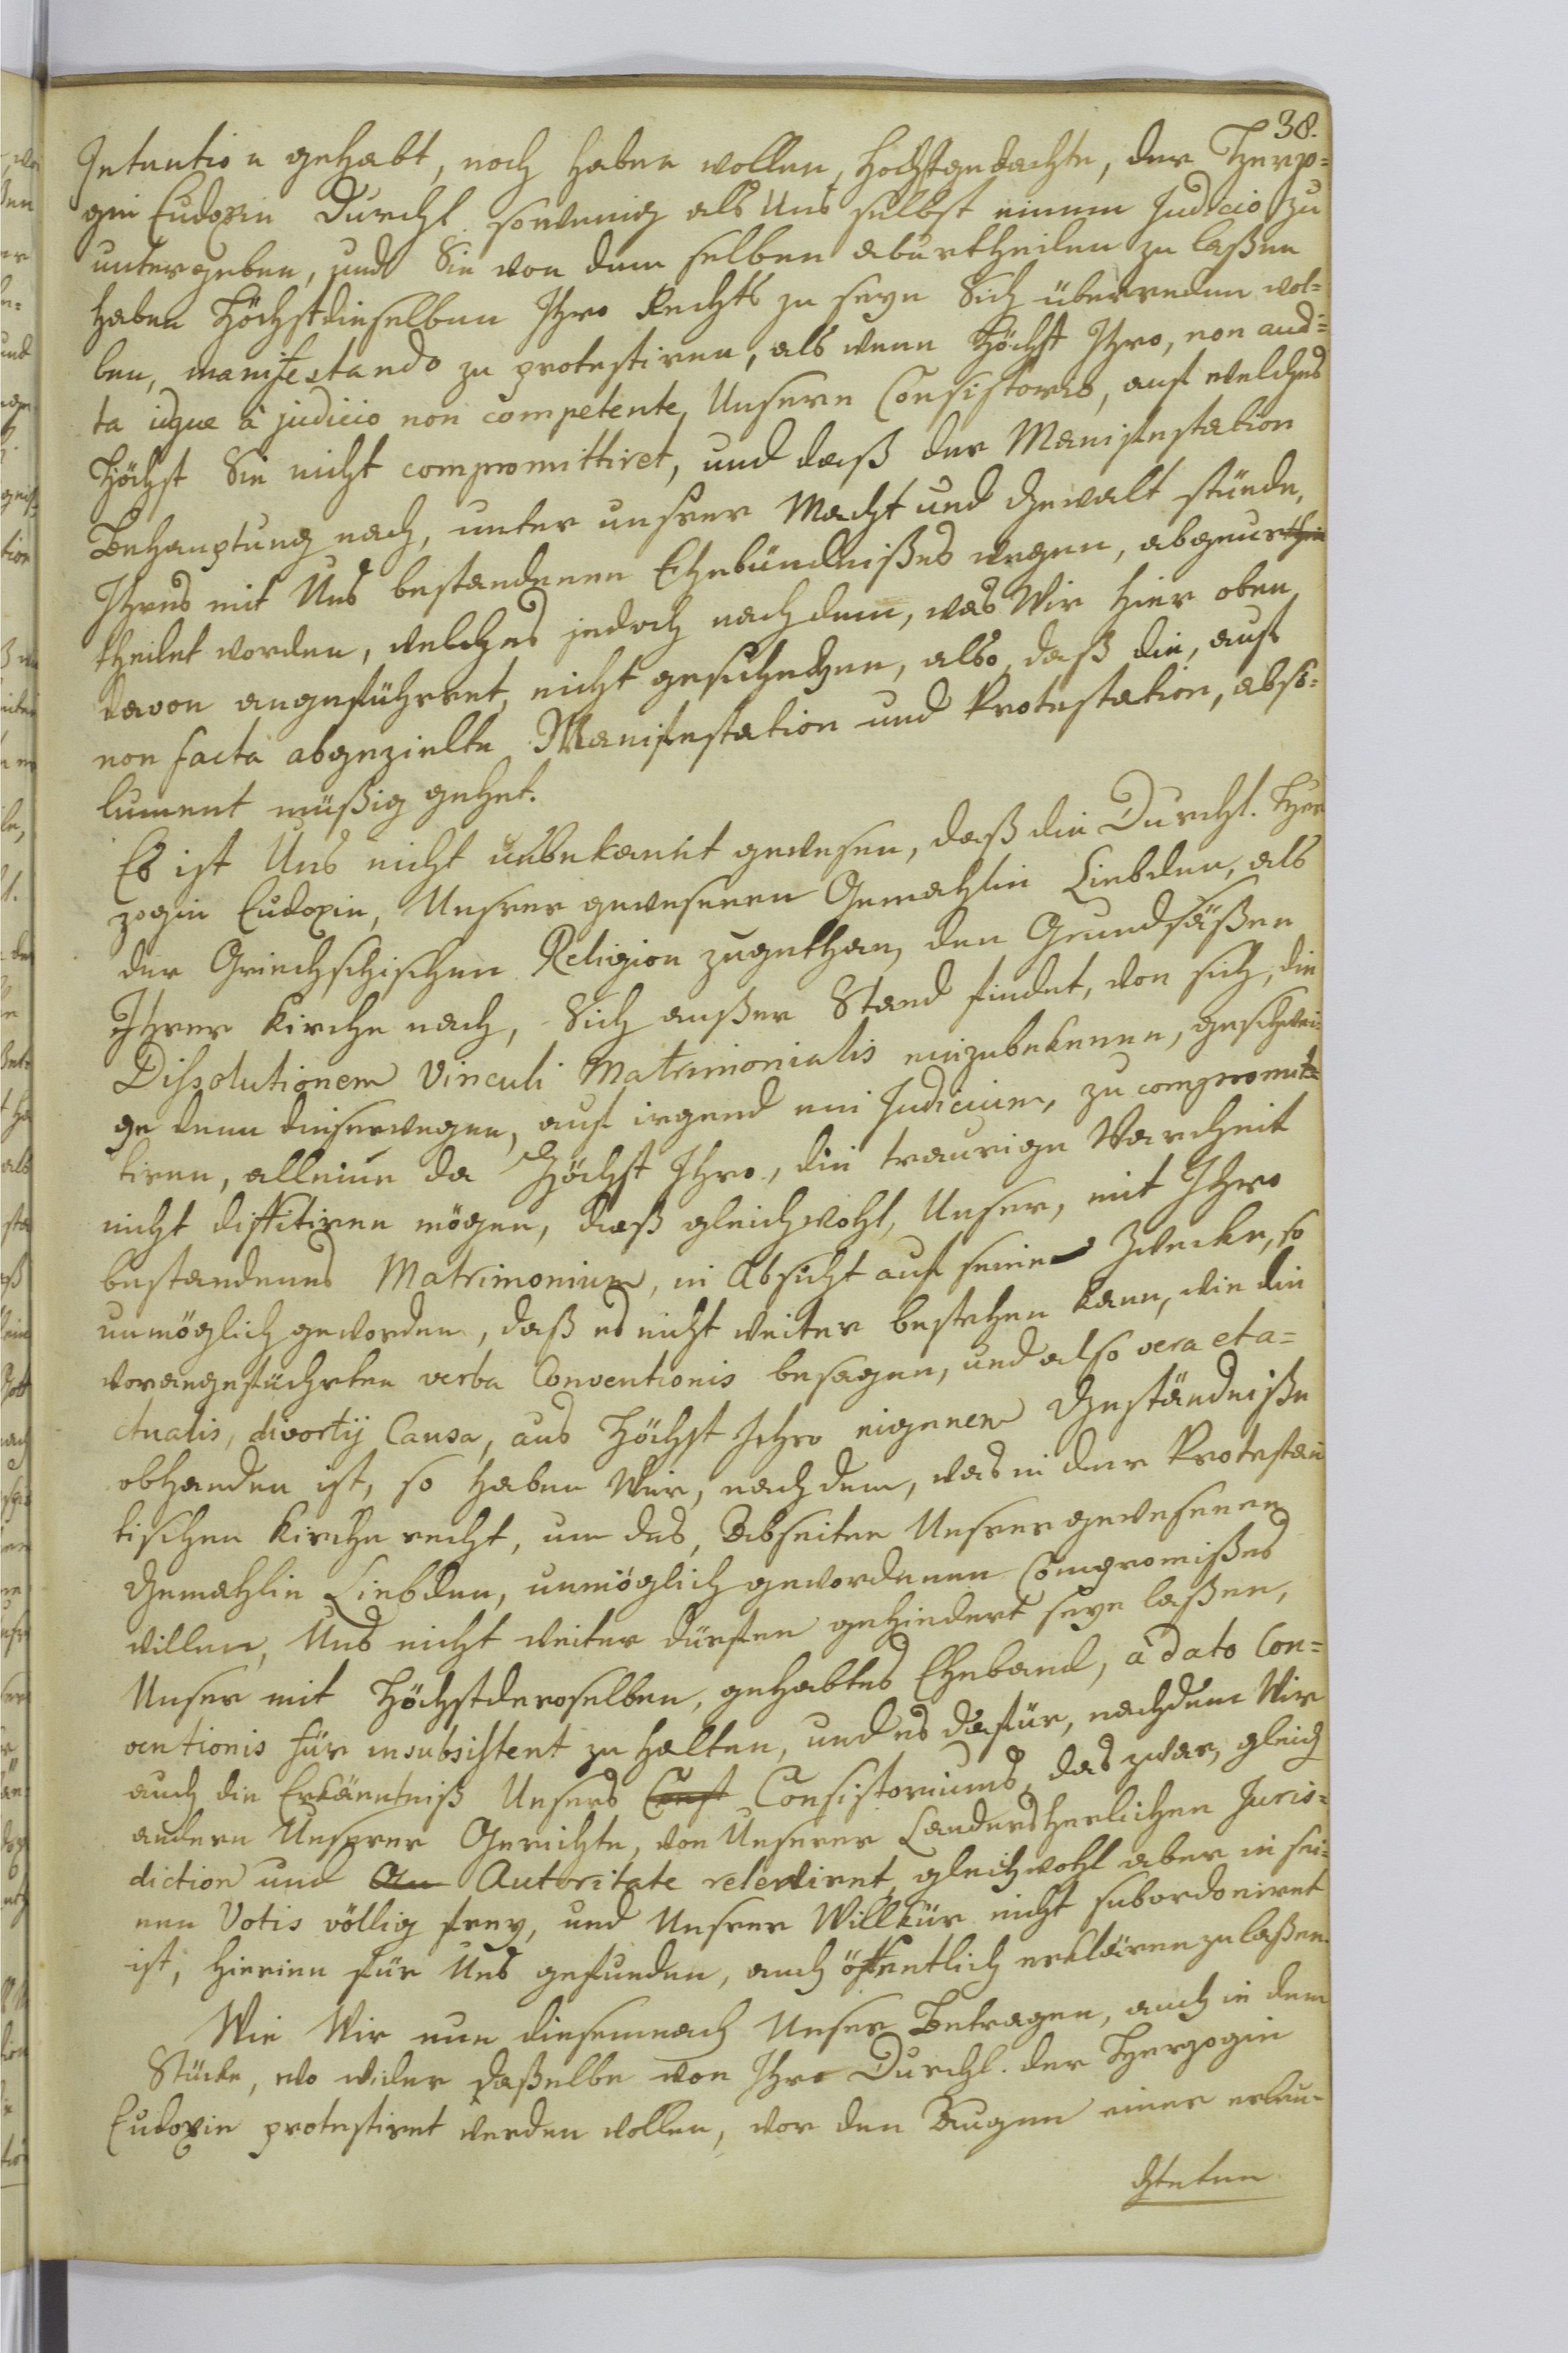 38.
Intention gehabt, noch haben wollen, Höchstgedachte, der Herzo=
gin Eudoxie Durchl. sowenig als Uns selbst einem Judicio zu
untergeben, und Sie von dem selben aburtheilen zu laßen
haben Höchstdieselben Ihro Rechts zu seyn Sich überreden wol=
len, manifestando zu protestiren, als wenn Höchst Ihro, non audi=
ta idque à judicio non competente, Unsern Consistorio, auf welches
Höchst Sie nicht compromittiret, und daß der Manifestation
Behauptung nach, unter unsrer Macht und Gewalt stünde,
Ihres mit Uns bestandenen Ehebündnißes wegen, abgeur
theilet worden, welches jedoch nach dem, was Wir hier oben
davon angeführet, nicht geschehen, also, daß die, auf
non facta abgezielte Manifestation und Protestation, abso=
lument müßig gehet.
Es ist Uns nicht unbekannt gewesen, daß die Durchl. Her
zogin Eudoxie, Unsrer gewesenen Gemahlin Liebden, als
der Griechschischen Religion zugethan, den Grundsäßen
Ihrer Kirche nach, Sich außer Stand findet, von sich, die
Dissolutionem Vinculi Matrimonialis einzubekennen, geschwei
ge denn dieserwegen, auf irgend ein Judicium, zu compromit=
tiren, alleine da Höchst Ihro, die traurige Warheit
nicht diffitiren mögen, daß gleichwohl, Unser, mit Ihro
bestandenes Matrimonium, in Absicht auf seine Zwecke, so
unmöglich geworden, daß es nicht weiter bestehen kann, wie die
vorangeführten verba Conventionis besagen, und also vera et a=
ctualis, divortij Causa, aus Höchst Ihro eigenen Geständniße
obhanden ist, so haben Wir, nach dem, was in der Protestan
tischen Kirche recht, um des, Abseiten Unsrer gewesenen
Gemahlin Liebden, unmöglich gewordenen Compromißes
willen, Uns nicht weiter dürfen gehindert seyn laßen,
Unser mit Höchstderoselben, gehabtes Eheband, à dato Con=
ventionis für insubsistent zu halten, und es dafür, nachdem Wir
auch die Erkänntniß Unsers Consistoriums, das zwar, gleich
andern Unsrer Gerichte, von Unserer Landesherlichen Juris=
diction und Autoritate relevirt, gleichwohl aber in sei=
nen Votis völlig frey, und Unsrer Willkür nicht subordoniret
ist, hierinn für Uns gefunden, auch öffentlich erklären zu laßen.
Wie Wir nun diesemnach Unser Betragen, auch in dem
Stücke, wo wider daßelbe von Ihro Durchl. der Herzogin
Eudoxie protestiret werden wollen, vor den Augen einer erleu=
chteten